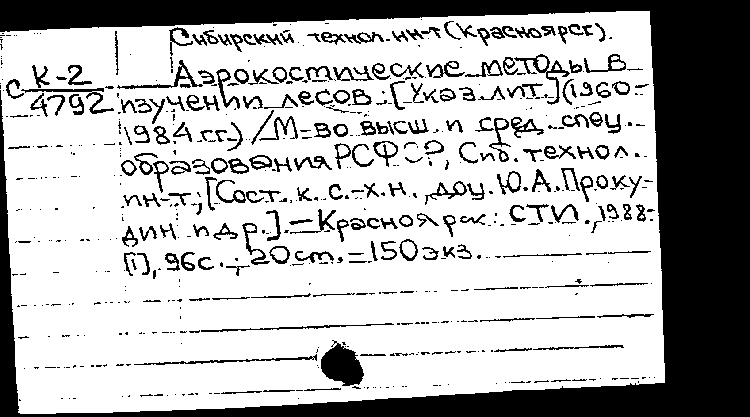 Сибирский технол. ин-т (Красноярск).
С К-2 Аэрокостические методы в
4792 изучении лесов: [Указ. лит.] (1960-
1984 гг.) / М-во высш. и сред. спец.
образования РСФСР, Сиб. технол.
ин-т; [Сост. к. с.-х. н., доц. Ю.А. Проку-
дин и др.]. — Красноярск: СТИ, 1988-
[1], 96 с.; 20 ст. = 150 экз.